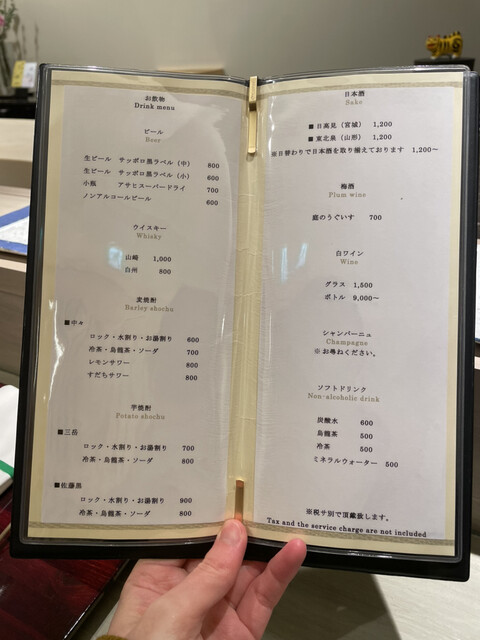 お飲物
Drink menu
ビール
Beer
生ビール サッポロ黒ラベル（中） 800
生ビール サッポロ黒ラベル（小） 600
小瓶 アサヒスーパードライ 700
ノンアルコールビール 600
ウイスキー
Whisky
山崎 1,000
白州 800
麦焼酎
Barley shochu
■中々
ロック・水割り・お湯割り 600
冷茶・烏龍茶・ソーダ 700
レモンサワー 800
すだちサワー 800
芋焼酎
Potato shochu
■三岳
ロック・水割り・お湯割り 700
冷茶・烏龍茶・ソーダ 800
■佐藤黒
ロック・水割り・お湯割り 900
冷茶・烏龍茶・ソーダ 800
日本酒
Sake
■日高見（宮城） 1,200
■東北泉（山形） 1,200
※日替わりで日本酒を取り揃えております 1,200～
梅酒
Plum wine
庭のうぐいす 700
白ワイン
Wine
グラス 1,500
ボトル 9,000～
シャンパーニュ
Champagne
※お尋ねください。
ソフトドリンク
Non-alcoholic drink
炭酸水 600
烏龍茶 500
冷茶 500
ミネラルウォーター 500
※税サ別で頂戴致します。
Tax and the service charge are not included